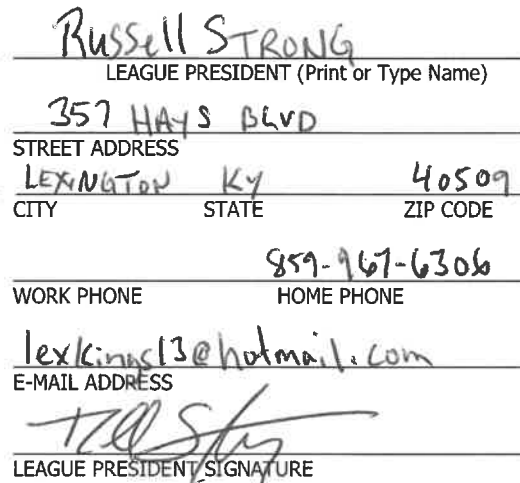 Russell STRONG
LEAGUE PRESIDENT (Print or Type Name)
357 HAYS BLVD
STREET ADDRESS
LEXINGTON KY 40509
CITY STATE ZIP CODE
859-967-6306
WORK PHONE HOME PHONE
lexkings13@hotmail.com
E-MAIL ADDRESS
LEAGUE PRESIDENT SIGNATURE